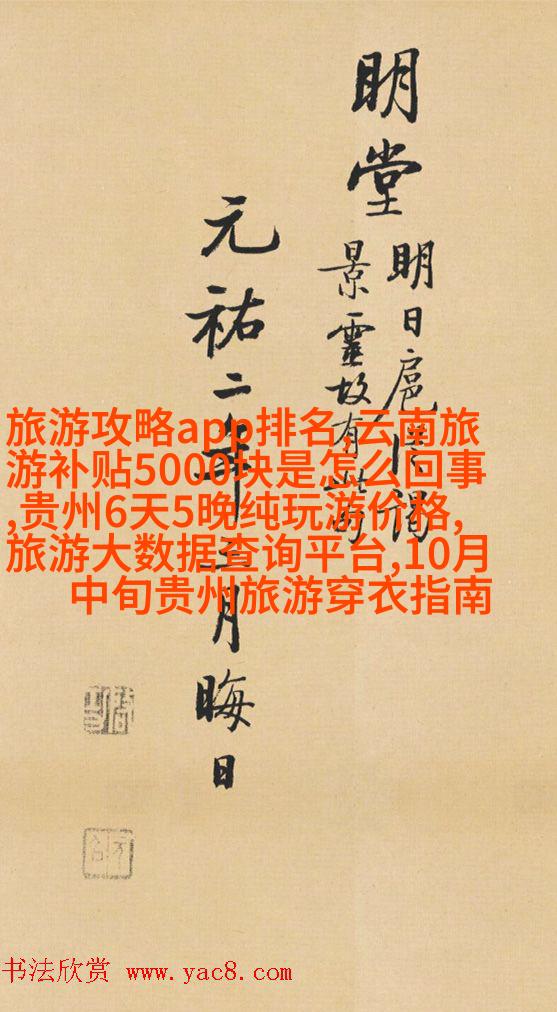 明堂
明日扈從謁
景靈故有此句
元祐二年三月晦日
旅游攻略app排名,云南旅
游补贴5000块是怎么回事
,贵州6天5晚纯玩游价格,
旅游大数据查询平台,10月
中旬贵州旅游穿衣指南
书法欣赏 www.yac8.com